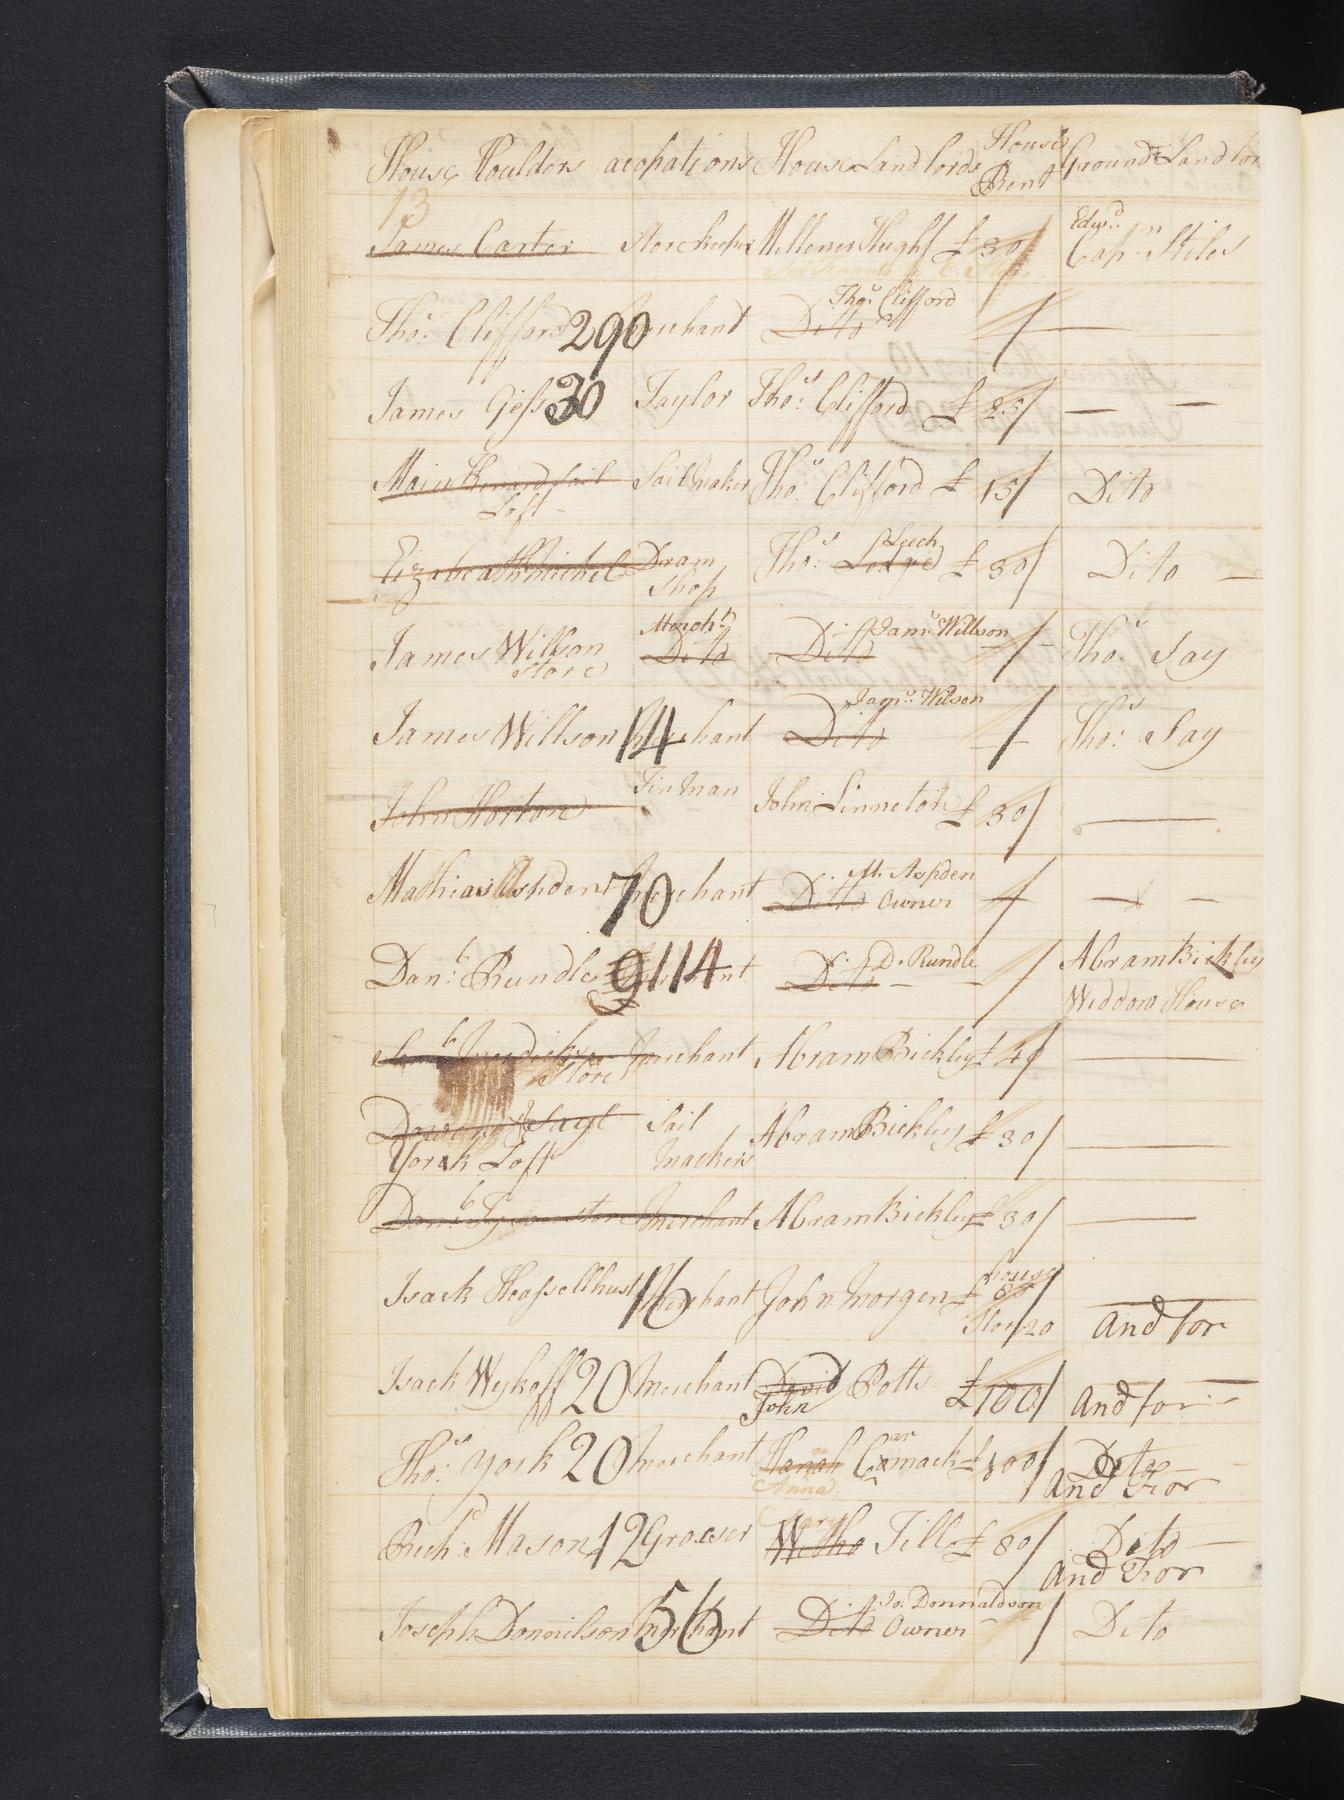 House Houlders acopations House Landlords House Rent Ground Landlor
13
James Carter Storekeeper Millener Hugh £ 30/ Edwd. Capn. Stiles
Thos. Clifford 290 Merchant Dito Thos. Clifford / —
James Gess 30 Taylor Thos. Clifford £ 25/ — —
Sail Loft - Sailmaker Thos. Clifford £ 15/ Dito
Elizabeath Michel Dram Shop Thos. Leech £ 30/ Dito —
James Willson Store Mercht. Dito Dito Jams. Willson / Thos. Say
James Willson 14 Merchant Dito Jams. Wilson / Thos. Say
John Horton Tin Man John Linnetoh £ 30/ —
Mathias Ashdent 70 Merchant Dito M. Aspden Owner / — —
Danl. Rundle 9114 Merchant Dito D. Rundle / Abram Bickley
Widdow House
Store Merchant Abram Bickley £ 40/ —
Yorak Loft Sail Mackers Abram Bickley £ 30/ —
Merchant Abram Bickley £ 30/ —
Isack Heassellhust 16 Merchant John Morgen £ house 80/ Stor 20 and for
Isack Wykoff 20 Merchant David John Potts £100/ and for -
Thos. York 20 Merchant Hanah Anna Carmack £ 100/ Dito
and For
Rich. Mason 12 Groaser Mary Widho Till £ 80/ Dito —
and For
Joseph Donnilson 56 Merchant Dito Jo. Donnaldson Owner / Dito